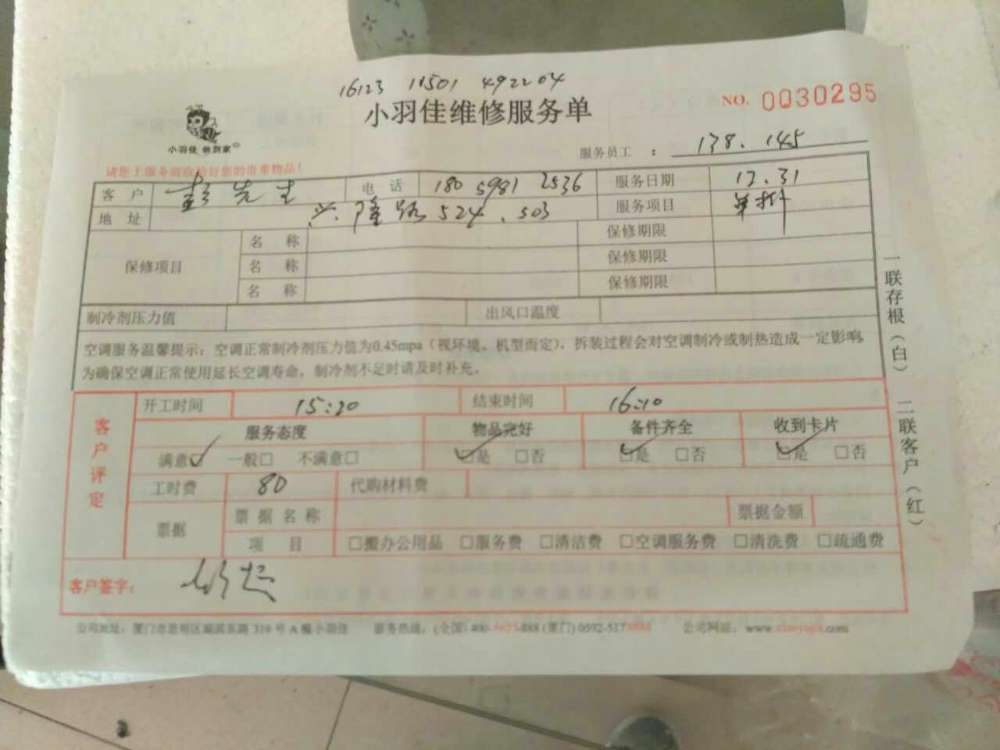 16123 11501 492204
小羽佳维修服务单 NO. 0030295
小羽佳 他到家
服务员工 : 138. 145
请您于服务前收拾好您的贵重物品!
客户 彭先生 电话 180 5981 2536 服务日期 12.31
地址 兴隆路524.503 服务项目 单拆
保修项目 名称 保修期限
名称 保修期限
名称 保修期限
制冷剂压力值 出风口温度
空调服务温馨提示:空调正常制冷剂压力值为0.45mpa(视环境、机型而定),拆装过程会对空调制冷或制热造成一定影响,
为确保空调正常使用延长空调寿命,制冷剂不足时请及时补充。
客户评定
开工时间 15:20 结束时间 16:10
服务态度 物品完好 备件齐全 收到卡片
满意☑ 一般□ 不满意□ ☑是 □否 ☑是 □否 ☑是 □否
工时费 80 代购材料费
票据 票据名称 票据金额
项目 □搬办公用品 □服务费 □清洁费 □空调服务费 □清洗费 □疏通费
客户签字:
公司地址:厦门市思明区湖滨东路319号A幢小羽佳 服务热线:(全国)400- 888(厦门)0592-517 公司网站:www.xiaoyujia.com
一联存根(白) 二联客户(红)